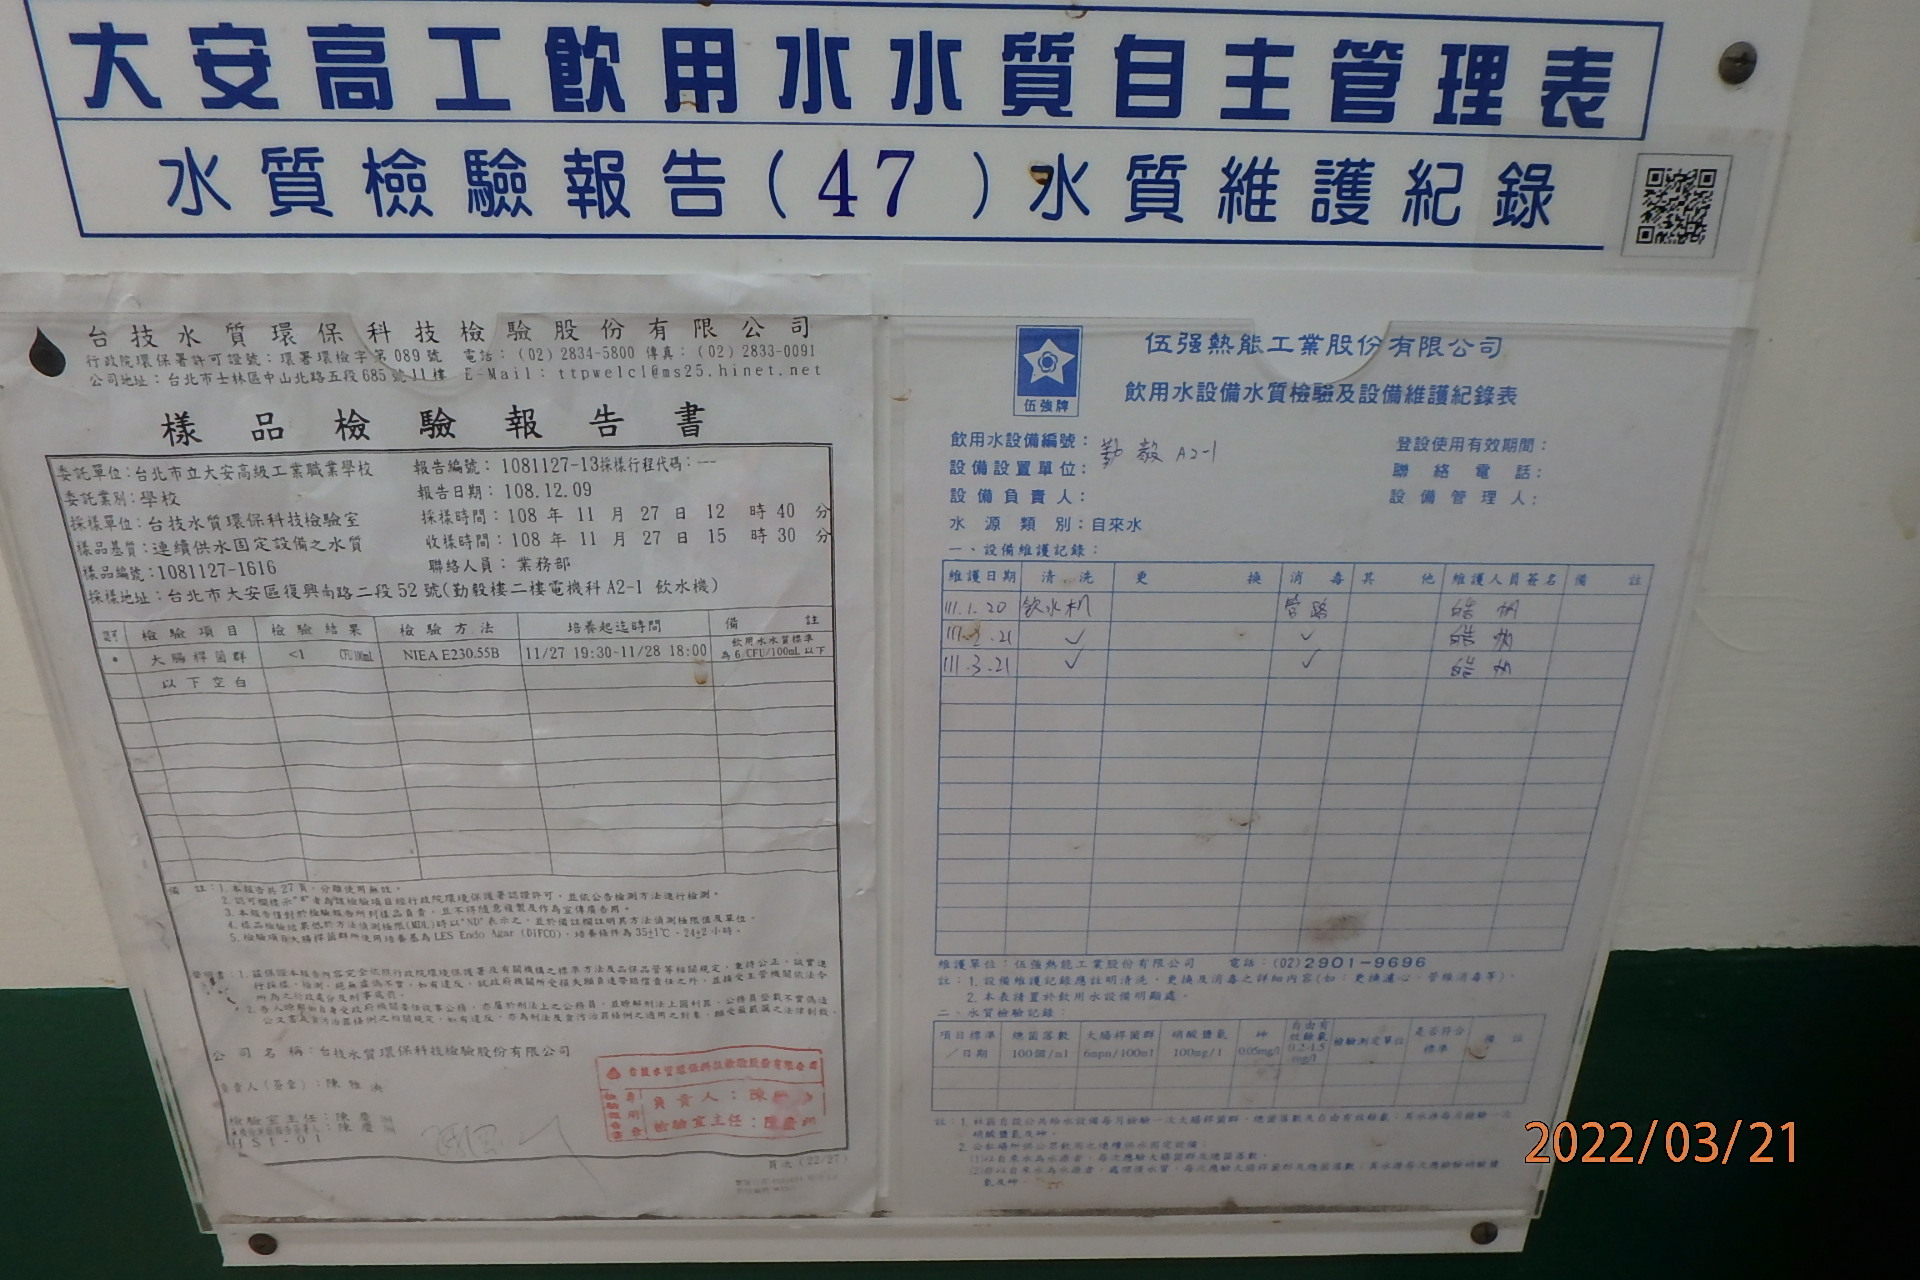 大安高工飲用水水質自主管理表
水質檢驗報告(47)水質維護紀錄
台技水質環保科技檢驗股份有限公司
行政院環保署許可證號：環署環檢字第089號 電話：(02)2834-5800 傳真：(02)2833-0091
公司地址：台北市士林區中山北路五段685號11樓 E-Mail：ttpwelcl@ms25.hinet.net
樣品檢驗報告書
委託單位：台北市立大安高級工業職業學校 報告編號：1081127-13採樣行程代碼：---
委託業別：學校 報告日期：108.12.09
採樣單位：台技水質環保科技檢驗室 採樣時間：108 年 11 月 27 日 12 時 40 分
樣品基質：連續供水固定設備之水質 收樣時間：108 年 11 月 27 日 15 時 30 分
樣品編號：1081127-1616 聯絡人員：業務部
採樣地址：台北市大安區復興南路二段52號(勤毅樓二樓電機科A2-1 飲水機)
認可 檢驗項目 檢驗結果 檢驗方法 培養起迄時間 備註
* 大腸桿菌群 <1 CFU/100mL NIEA E230.55B 11/27 19:30~11/28 18:00 飲用水水質標準為6 CFU/100mL以下
以下空白
備 註：1.本報告共27頁，分離使用無效。
2.認可欄標示"*"者為該檢驗項目經行政院環境保護署認證許可，並依公告檢測方法進行檢測。
3.本報告僅對於檢驗報告所列樣品負責，並不得隨意複製及作為宣傳廣告用。
4.樣品檢驗結果低於方法偵測極限(MDL)時以"ND"表示之，並於備註欄註明其方法偵測極限值及單位。
5.檢驗項目大腸桿菌群所使用培養基為LES Endo Agar (DIFCO)，培養條件為35±1℃、24±2小時。
公司名稱：台技水質環保科技檢驗股份有限公司
負責人(簽章)：陳
檢驗室主任：陳慶
HS1-01
台技水質環保科技檢驗股份有限公司
負責人：陳
檢驗室主任：陳慶
頁次(22/27)
伍強牌
伍强熱能工業股份有限公司
飲用水設備水質檢驗及設備維護紀錄表
飲用水設備編號：勤毅 A2-1 登設使用有效期間：
設備設置單位： 聯絡電話：
設備負責人： 設備管理人：
水源類別：自來水
一、設備維護記錄：
維護日期 清洗 更換 消毒 其他 維護人員簽名 備註
111.1.20 飲水机 管路
111.2.21 ✓ ✓
111.3.21 ✓ ✓
維護單位：伍强熱能工業股份有限公司 電話：(02)2901-9696
註：1.設備維護記錄應註明清洗、更換及消毒之詳細內容(如：更換濾心、管維消毒等)。
2.本表請置於飲用水設備明顯處。
二、水質檢驗記錄：
項目標準／日期 總菌落數100個/ml 大腸桿菌群6mpn/100ml 硝酸鹽氮100mg/l 砷0.05mg/l 自由有效餘氯0.2-1.5mg/l 檢驗測定單位 是否符合標準 備註
2022/03/21